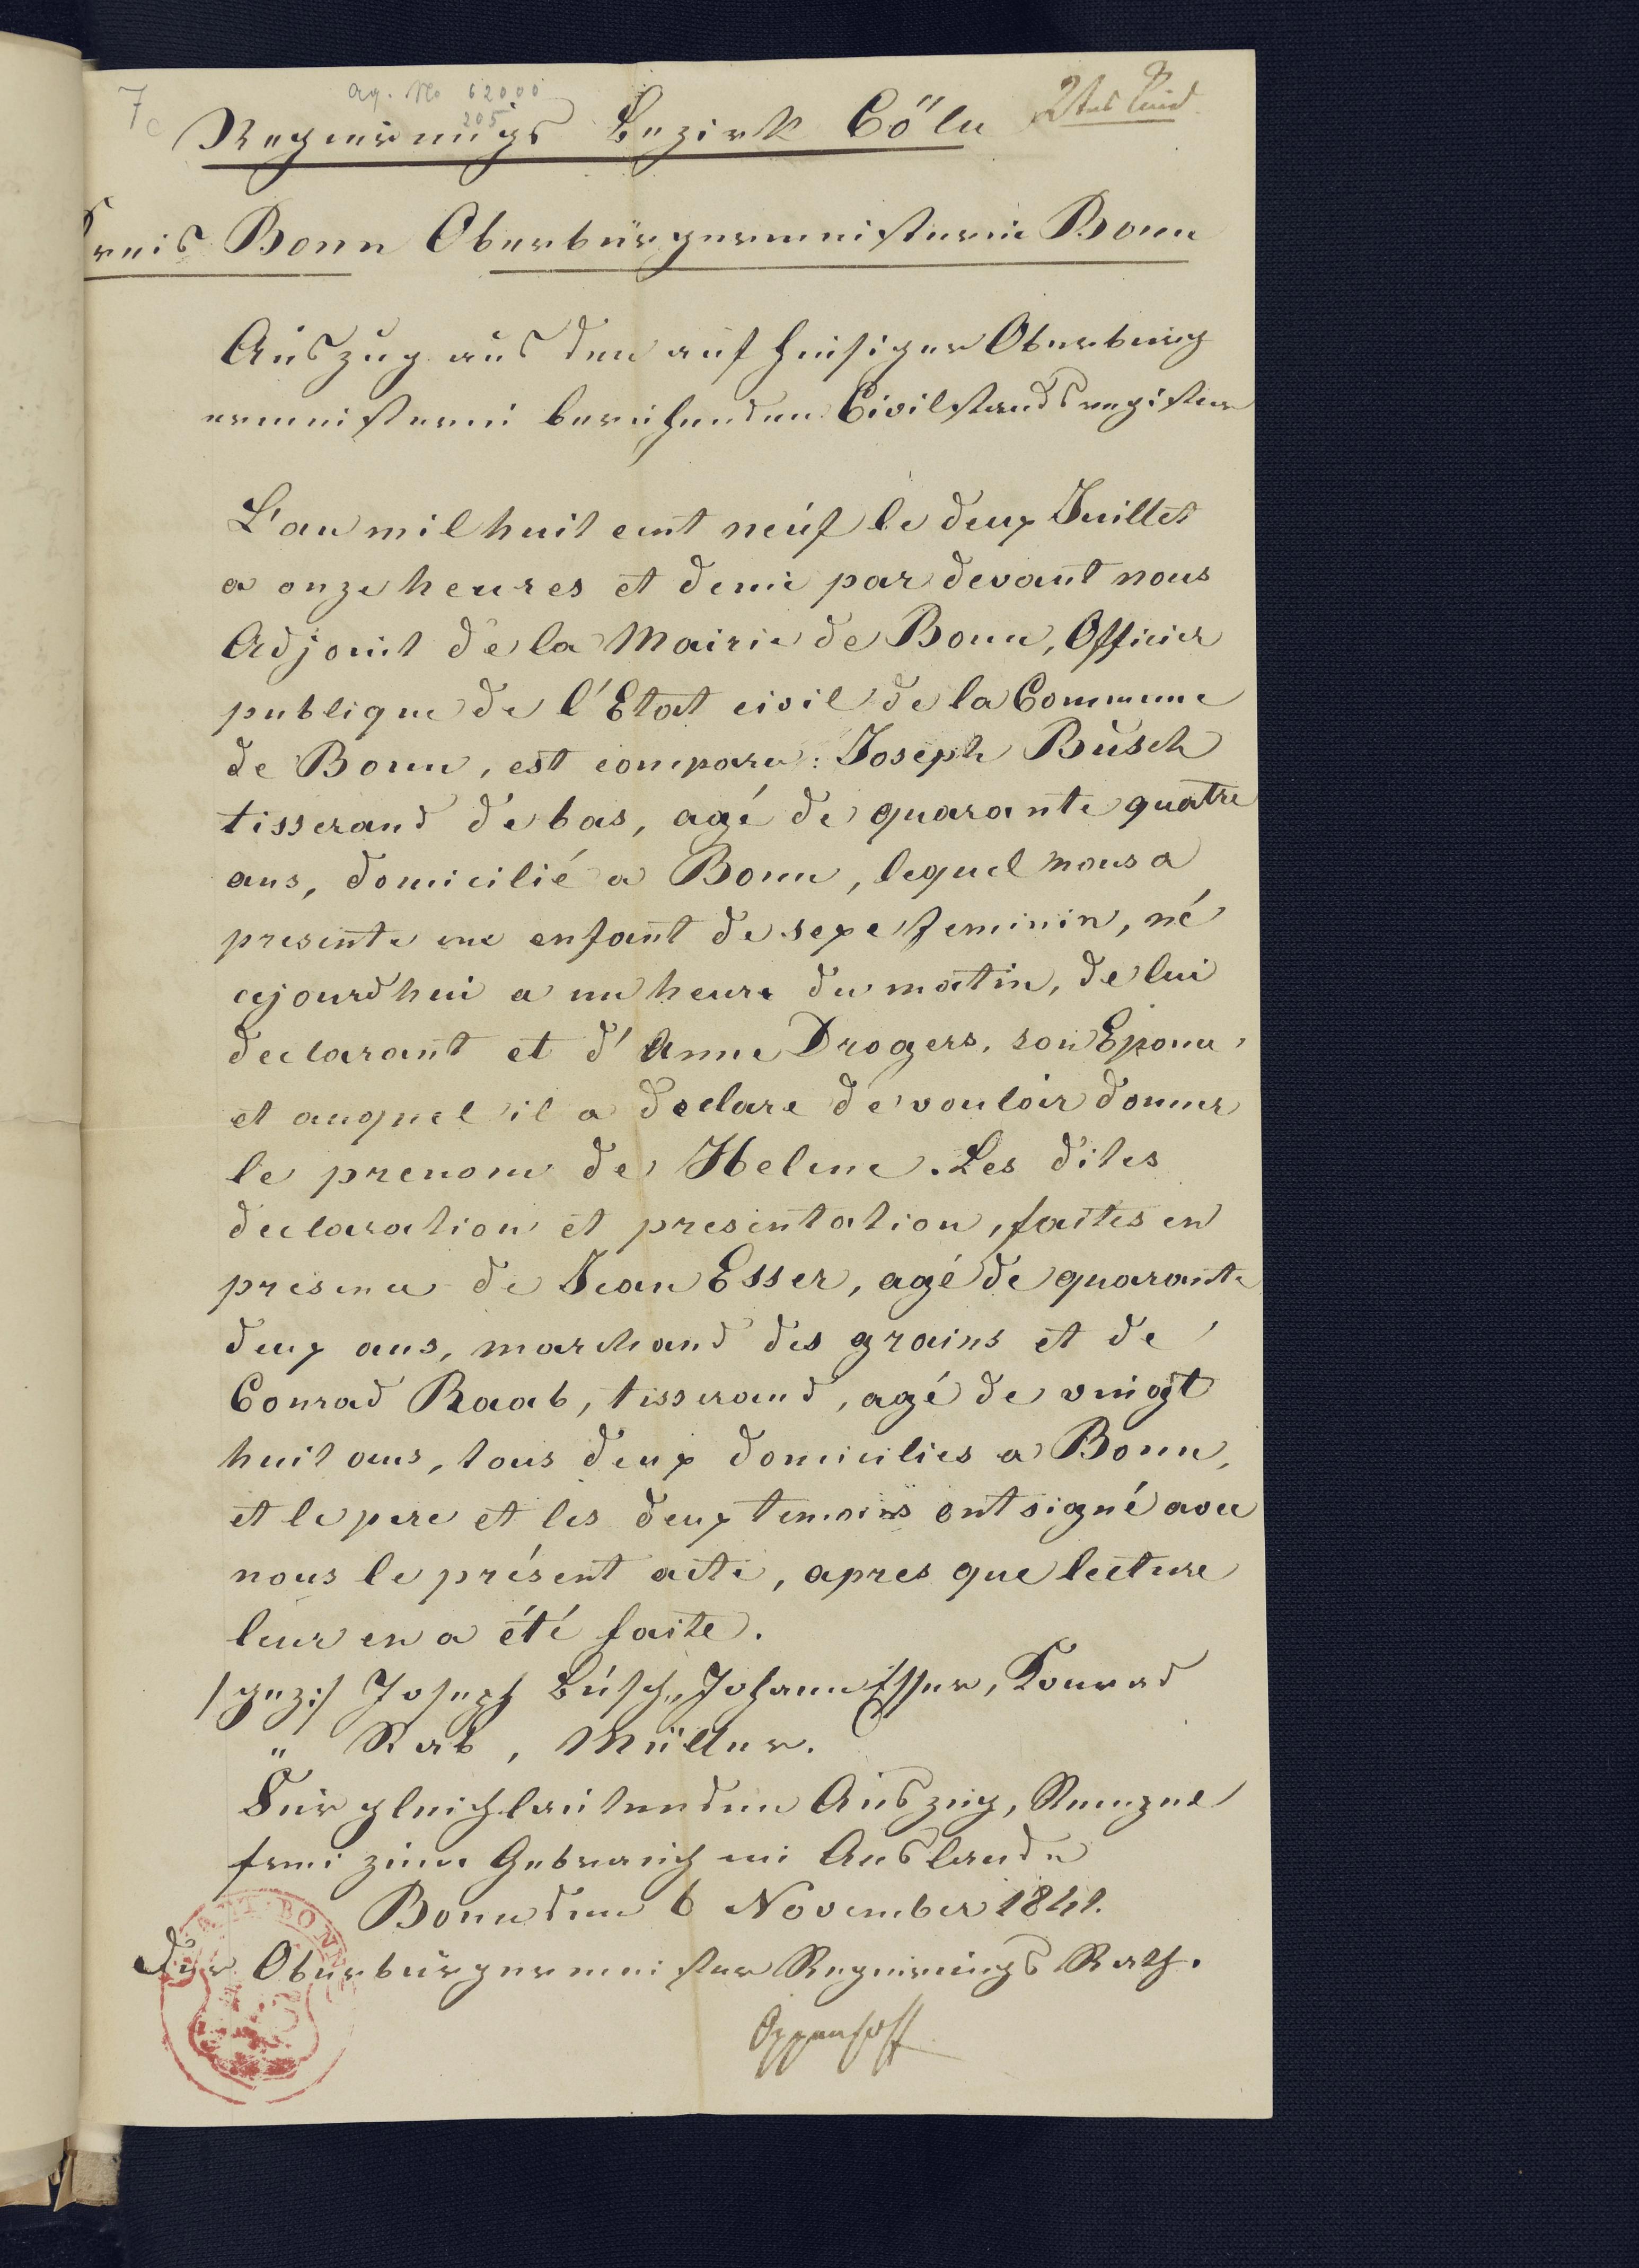 7c
ag. No 62000
205
2tes Kind
Regierungs Bezirk Cöln
Kreis Bonn Oberbürgermeisterei Bonn
Auszug aus den auf hiesiger Oberbürg
ermeisterei beruhenden Civilstandsregister
L'an mil huit cent neuf le deux Juillet
a onze heures et demie par devant nous
Adjoint de la Mairie de Bonn, Officier
publique de l'Etat civil de la Commune
de Bonn, est comparu: Joseph Büsch
tisserand de bas, agé de quarante quatre
ans, domicilié a Bonn, lequel nous a
presente une enfant de sexe feminin, né
ajourdhui a un heure du matin, de lui
declarant et d'Anne Drogers, son Epouse,
et auquel il a declare de vouloir donner
le prenom de Helene. Les dites
declaration et presentation, faites en
presence de Jean Esser, agé de quarante
deux ans, marchand des grains et de
Conrad Raab, tisserand, agé de vingt
huit ans, tous deux domicilies a Bonn,
et le pere et les deux temoins ont signé avec
nous le présent acte, apres que lecture
leur en a été faite.
/gez:/ Joseph Büsch, Johann Esser, Konrad
" Rab, Müller.
Für gleichlautenden Auszug, Stempel
frei zum Gebrauch im Auslande
Bonn den 6 November 1841.
Der Oberbürgermeister Regierungs Rath.
Oppenhoff
BONN